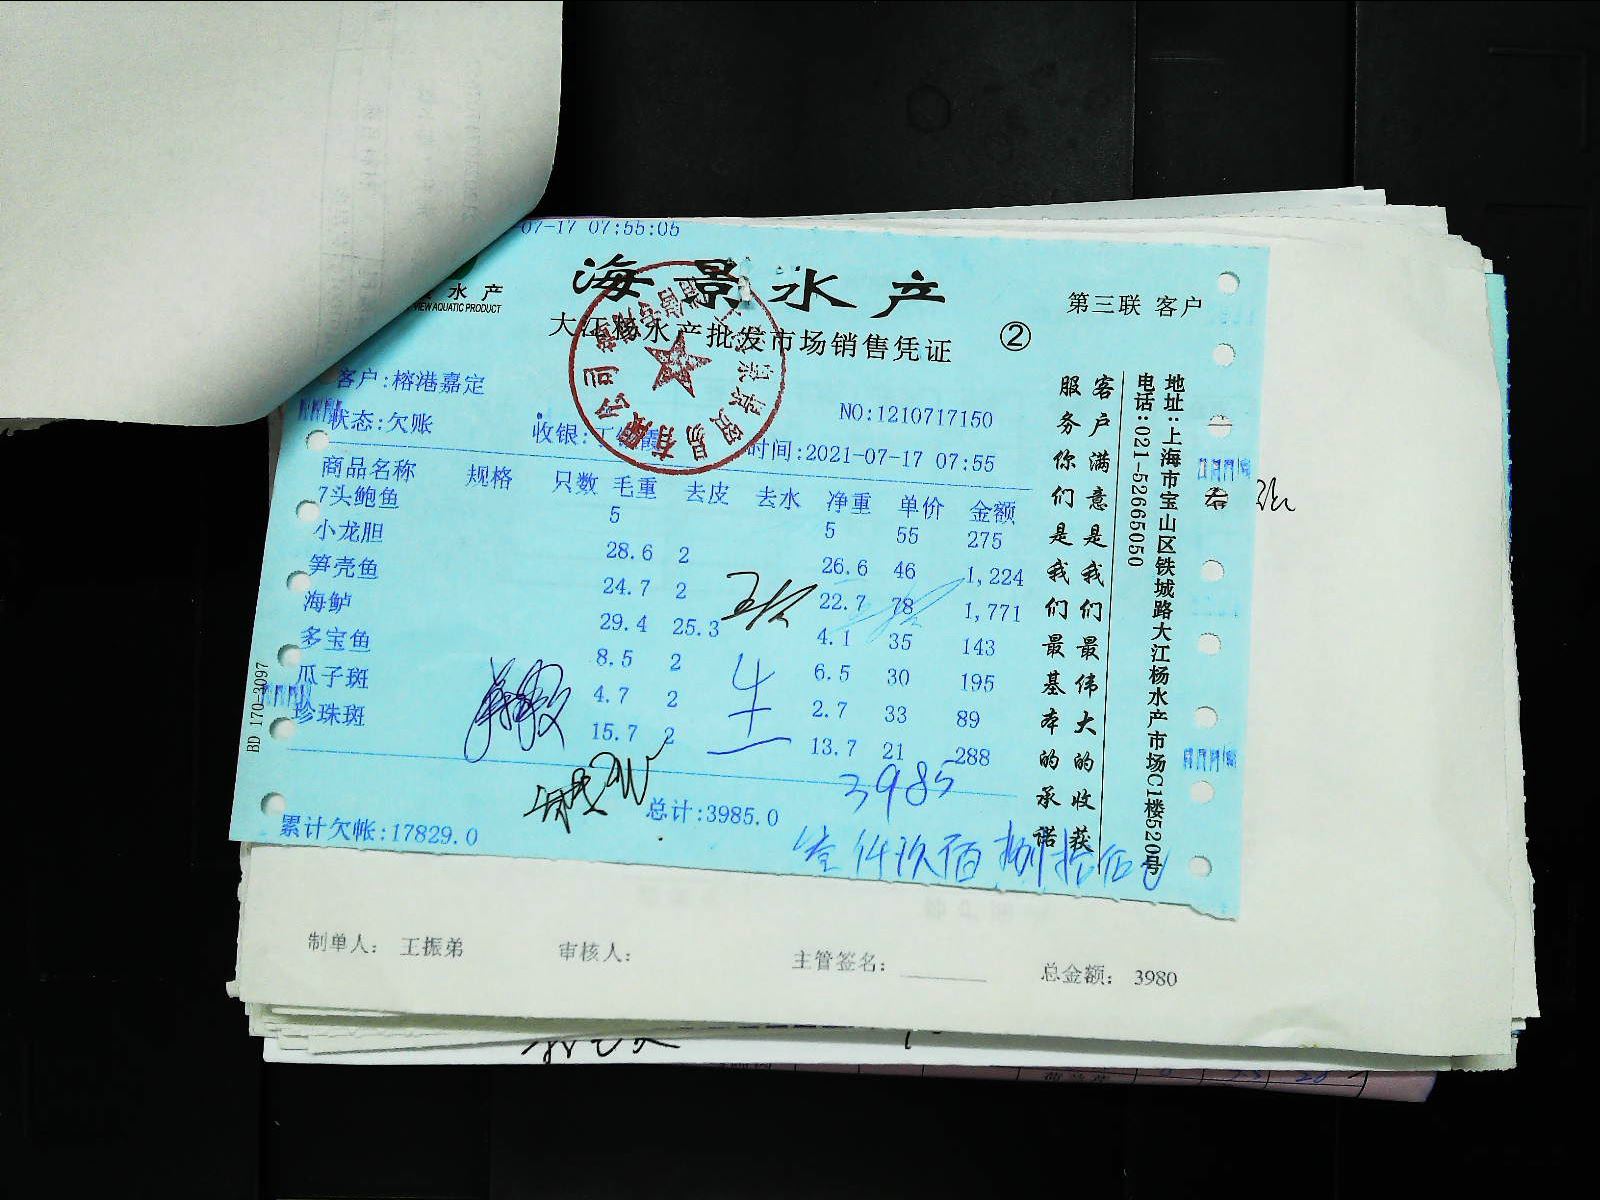 07-17 07:55:05
海景水产
水产
VIEW AQUATIC PRODUCT
大江杨水产批发市场销售凭证
②
第三联 客户
客户:榕港嘉定
NO:1210717150
状态:欠账
收银:丁
时间:2021-07-17 07:55
商品名称 规格 只数 毛重 去皮 去水 净重 单价 金额
7头鲍鱼 5 5 55 275
小龙胆 28.6 2 26.6 46 1,224
笋壳鱼 24.7 2 22.7 78 1,771
海鲈 29.4 25.3 4.1 35 143
多宝鱼 8.5 2 6.5 30 195
瓜子斑 4.7 2 2.7 33 89
珍珠斑 15.7 2 13.7 21 288
3985
总计:3985.0
累计欠帐:17829.0
叁仟玖佰捌拾伍
客户满意是我们最伟大的收获
服务你们是我们最基本的承诺
地址:上海市宝山区铁城路大江杨水产市场C1楼520号
电话:021-52665050
BD 170-3097
制单人： 王振弟 审核人： 主管签名： 总金额： 3980